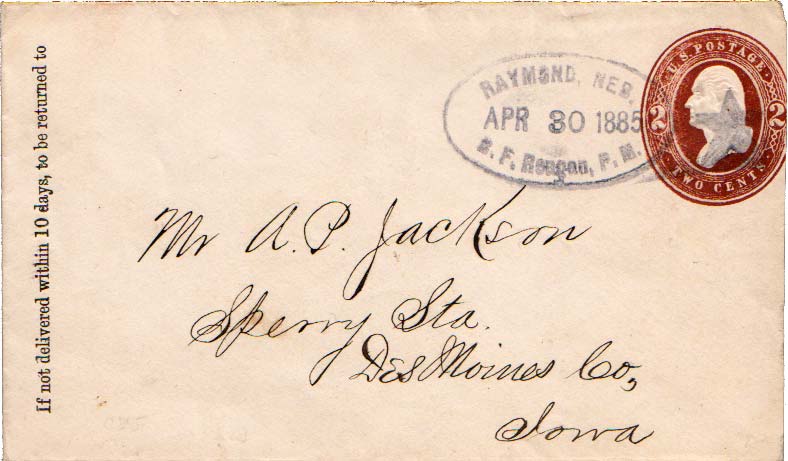 If not delivered within 10 days, to be returned to
RAYMOND, NEB.
APR 30 1885
F. P. M.
U.S. POSTAGE
2 2
TWO CENTS
Mr A. P. Jackson
Sperry Sta.
Des Moines Co,
Iowa